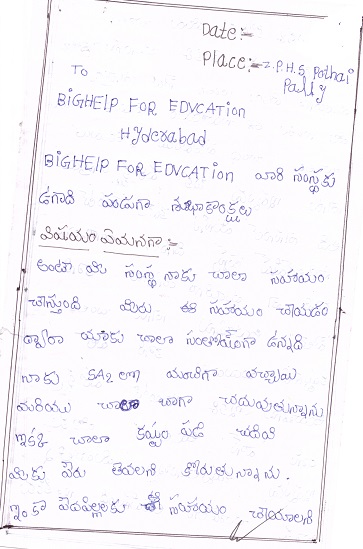 Date:-
Place:- Z.P.H.S Pothai
Pally
To
BIGHElp FOR EDVCATion
Hyderabad
BIGHElp FOR EDVCATion వారి సంస్థకు
ఉగాది పండుగా శుభాకాంక్షలు
విషయం ఏమనగా :-
అంతా మీ సంస్థ నాకు చాలా సహాయం
చేస్తుంది మీరు ఈ సహాయం చేయడం
ద్వారా మాకు చాలా సంతోషంగా ఉన్నది
నాకు SA2 లో మంచిగా వచ్చాయి
మరియు చాలా బాగా చదువుతున్నాను
ఇకకి చాలా కష్టం పడి చదివి
మీకు పేరు తేవాలని కోరుతున్నాను.
ఇంకా పేదపిల్లలకు ఈ సహాయం చేయాలని